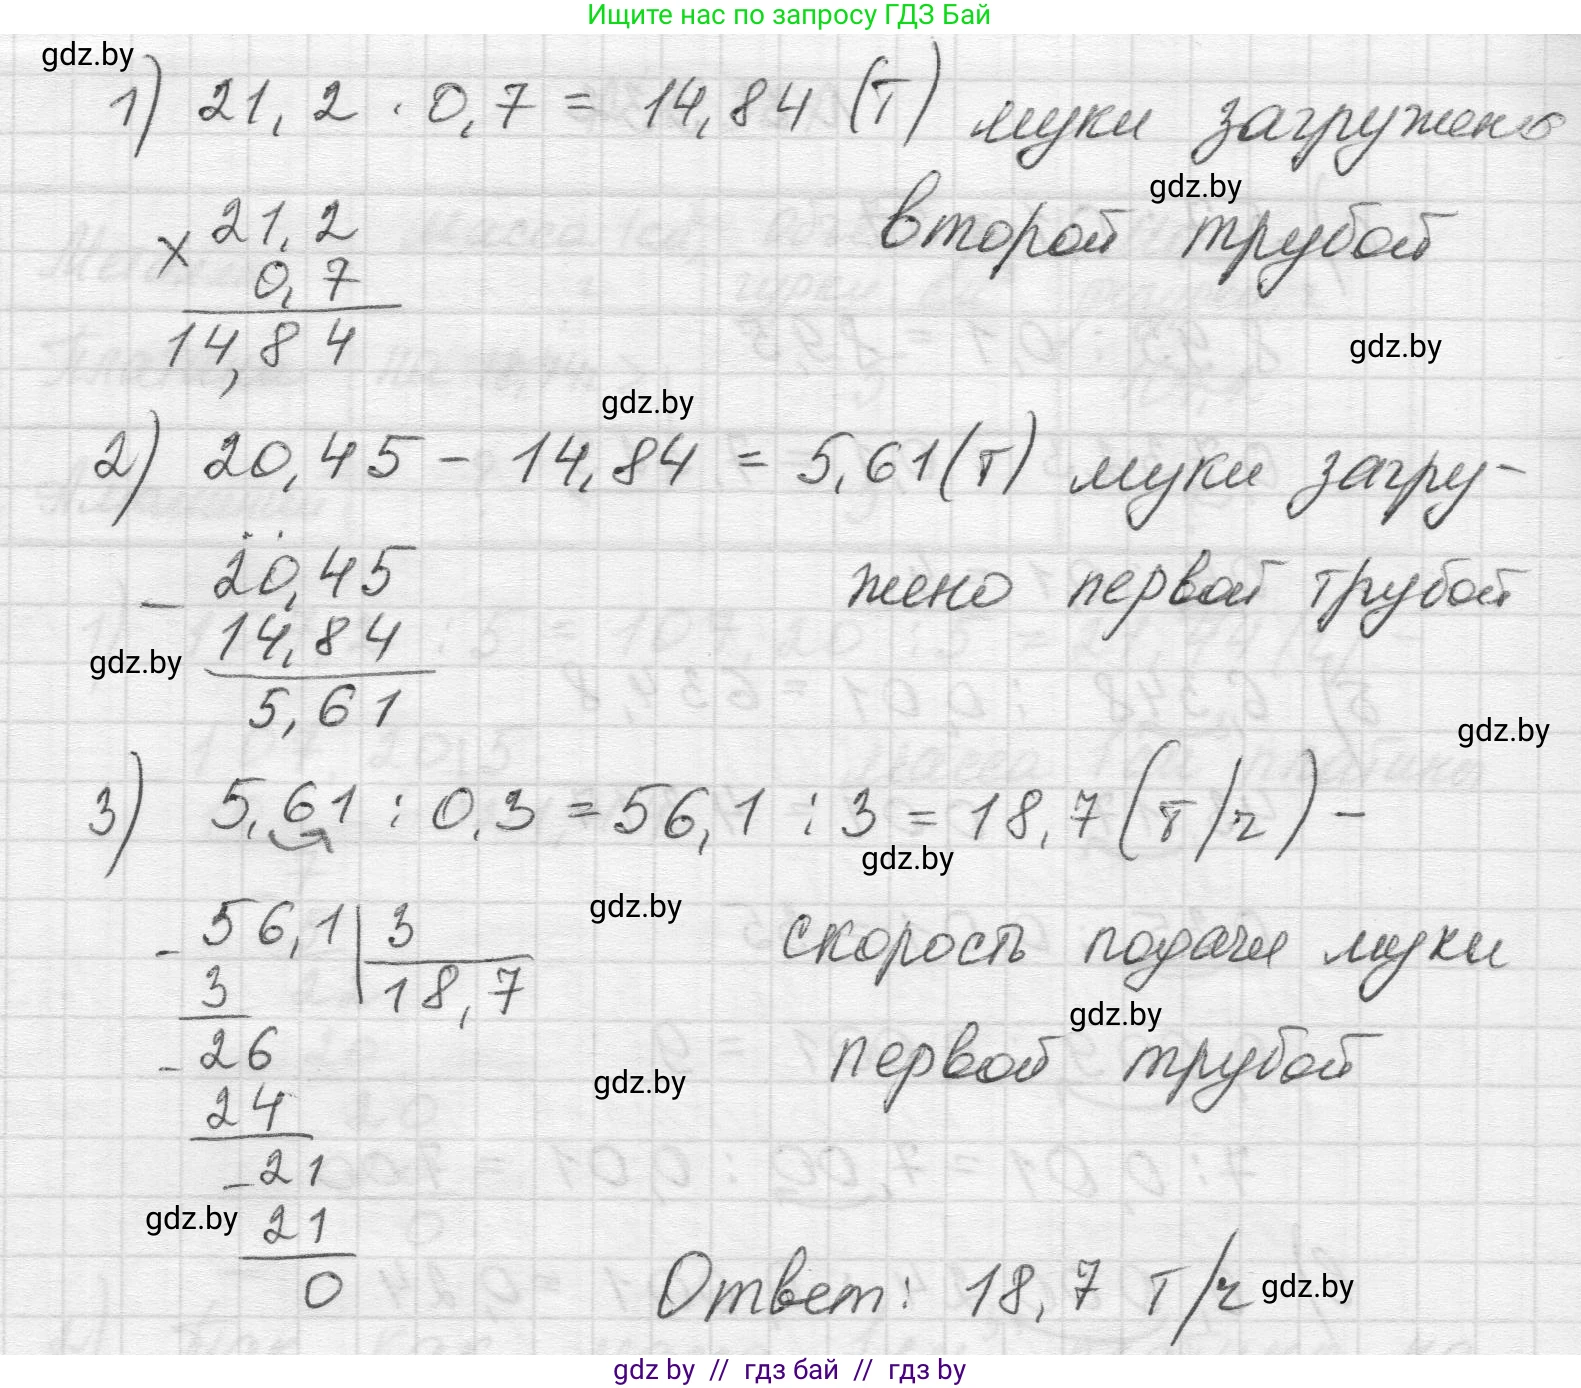 Ищите нас по запросу ГДЗ Бай
gdz.by
1) 21,2 · 0,7 = 14,84 (т) муки загружено
gdz.by
второй трубой
× 21,2
0,7
14,84
gdz.by
gdz.by
2) 20,45 - 14,84 = 5,61 (т) муки загру-
жено первой трубой
- 20,45
14,84
gdz.by
5,61
gdz.by
3) 5,61 : 0,3 = 56,1 : 3 = 18,7 (т/ч) -
gdz.by
gdz.by
скорость подачи муки
gdz.by
первой трубой
- 56,1 | 3
3 18,7
- 26
gdz.by
24
- 21
gdz.by
21
0
Ответ: 18,7 т/ч
gdz.by
gdz by // гдз бай // гдз by